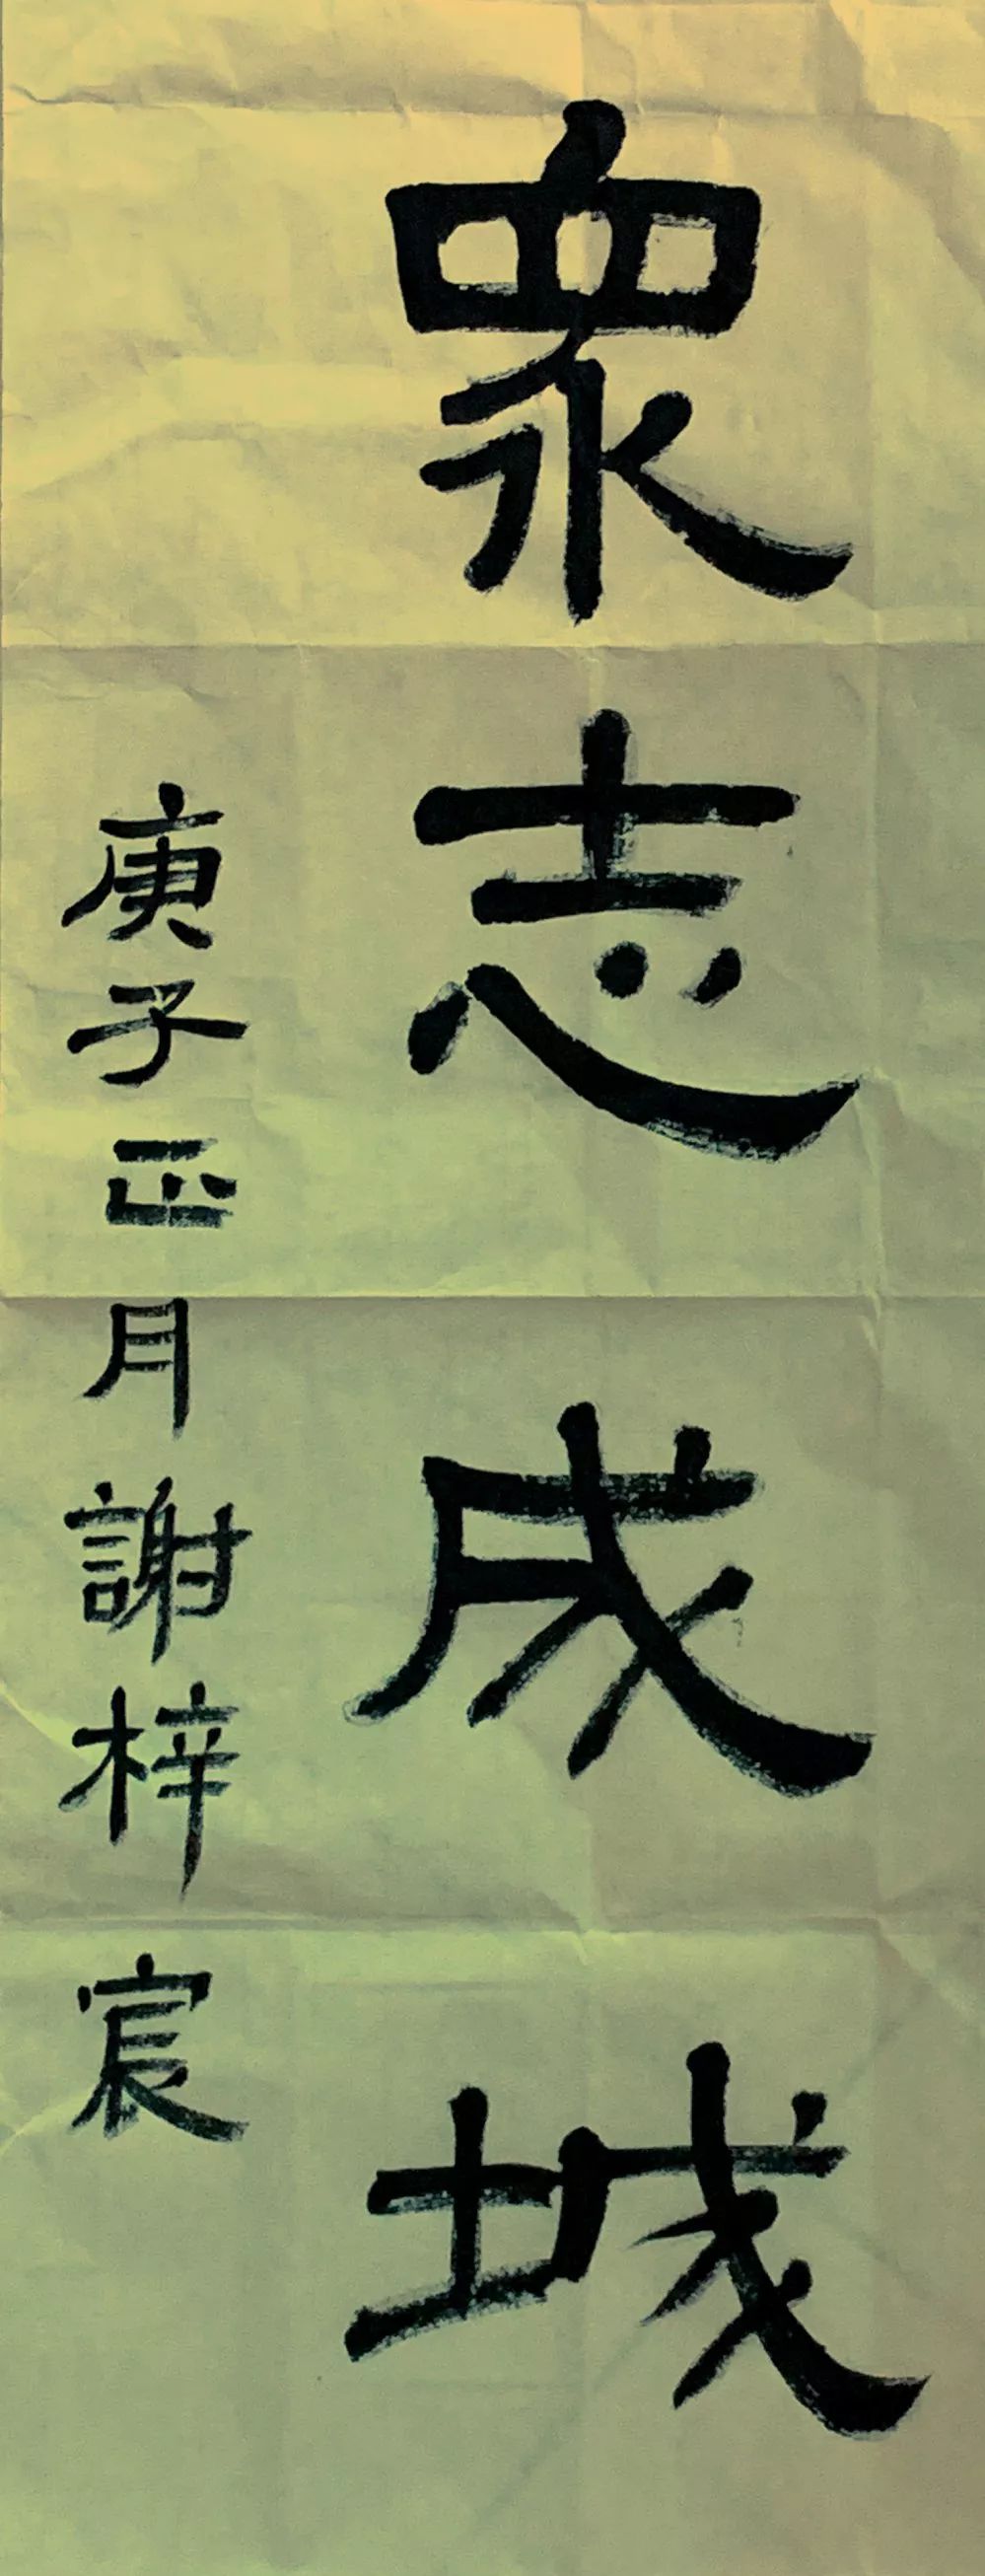 眾志成城
庚子正月謝梓宸